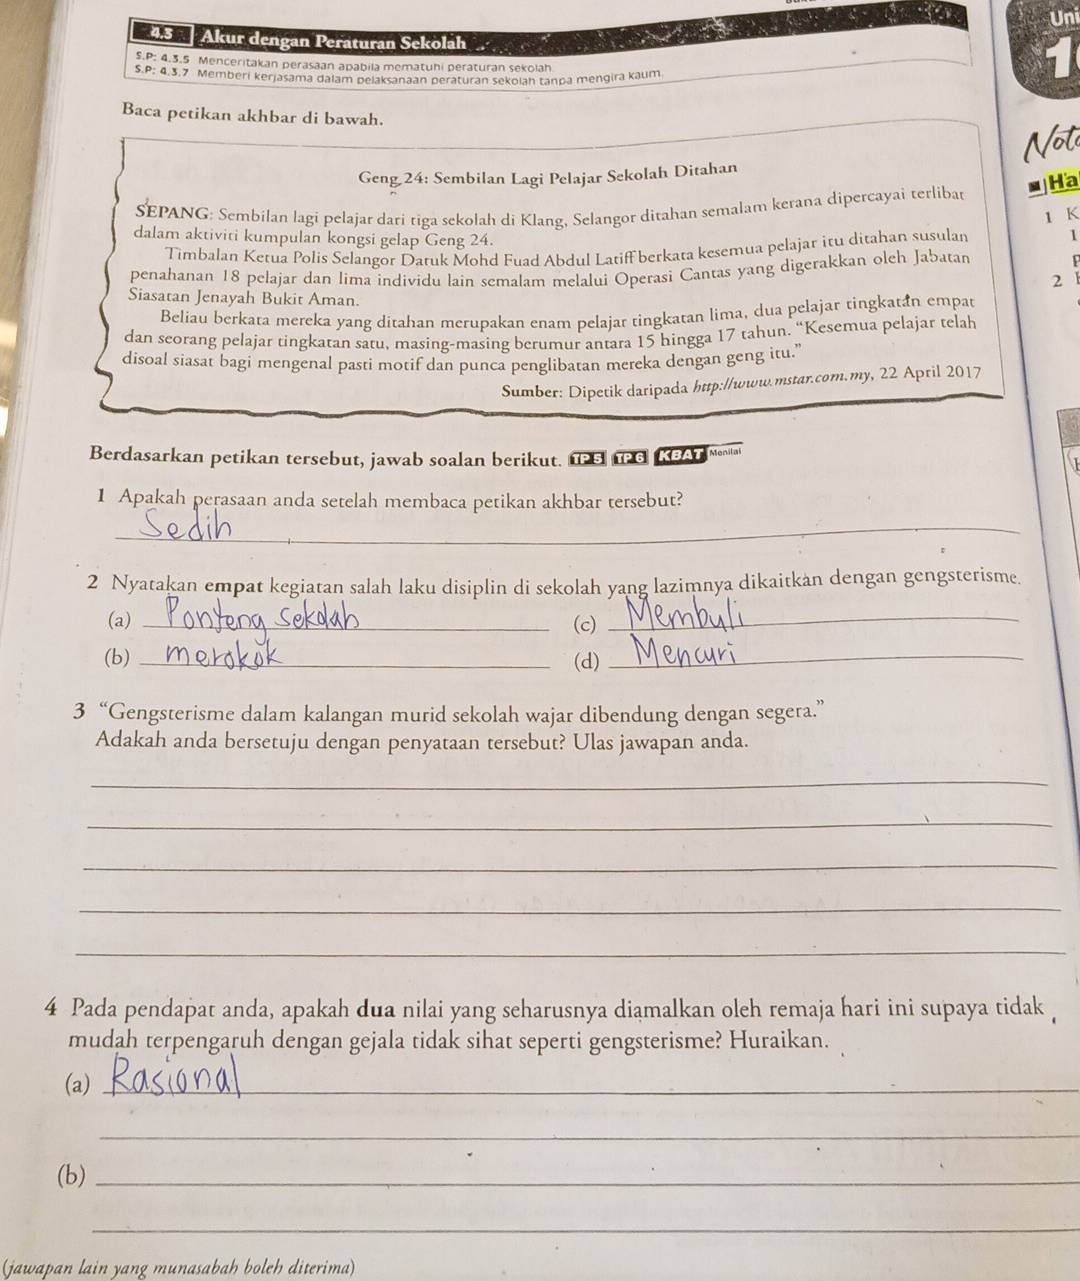 Uni
4.3 Akur dengan Peraturan Sekolah
1
S.P: 4.3.5 Menceritakan perasaan apabila mematuhi peraturan sekolah
S.P: 4.3.7 Memberi kerjasama dalam pelaksanaan peraturan sekolah tanpa mengira kaum.
Baca petikan akhbar di bawah.
Not
Geng 24: Sembilan Lagi Pelajar Sekolah Ditahan
Ha
SEPANG: Sembilan lagi pelajar dari tiga sekolah di Klang, Selangor ditahan semalam kerana dipercayai terlibat
1 K
dalam aktiviti kumpulan kongsi gelap Geng 24.
1
Timbalan Ketua Polis Selangor Datuk Mohd Fuad Abdul Latiff berkata kesemua pelajar itu ditahan susulan
penahanan 18 pelajar dan lima individu lain semalam melalui Operasi Cantas yang digerakkan oleh Jabatan
2
Siasatan Jenayah Bukit Aman.
Beliau berkata mereka yang ditahan merupakan enam pelajar tingkatan lima, dua pelajar tingkatan empat
dan seorang pelajar tingkatan satu, masing-masing berumur antara 15 hingga 17 tahun. “Kesemua pelajar telah
disoal siasat bagi mengenal pasti motif dan punca penglibatan mereka dengan geng itu.”
Sumber: Dipetik daripada http://www.mstar.com.my, 22 April 2017
Berdasarkan petikan tersebut, jawab soalan berikut. TP 5 TP 6 KBAT Menilai
1 Apakah perasaan anda setelah membaca petikan akhbar tersebut?
Sedih
2 Nyatakan empat kegiatan salah laku disiplin di sekolah yang lazimnya dikaitkan dengan gengsterisme.
(a) Ponteng sekolah (c) Membuli
(b) merokok (d) Mencuri
3 “Gengsterisme dalam kalangan murid sekolah wajar dibendung dengan segera.”
Adakah anda bersetuju dengan penyataan tersebut? Ulas jawapan anda.
4 Pada pendapat anda, apakah dua nilai yang seharusnya diamalkan oleh remaja hari ini supaya tidak
mudah terpengaruh dengan gejala tidak sihat seperti gengsterisme? Huraikan.
(a) Rasional
(b)
(jawapan lain yang munasabah boleh diterima)